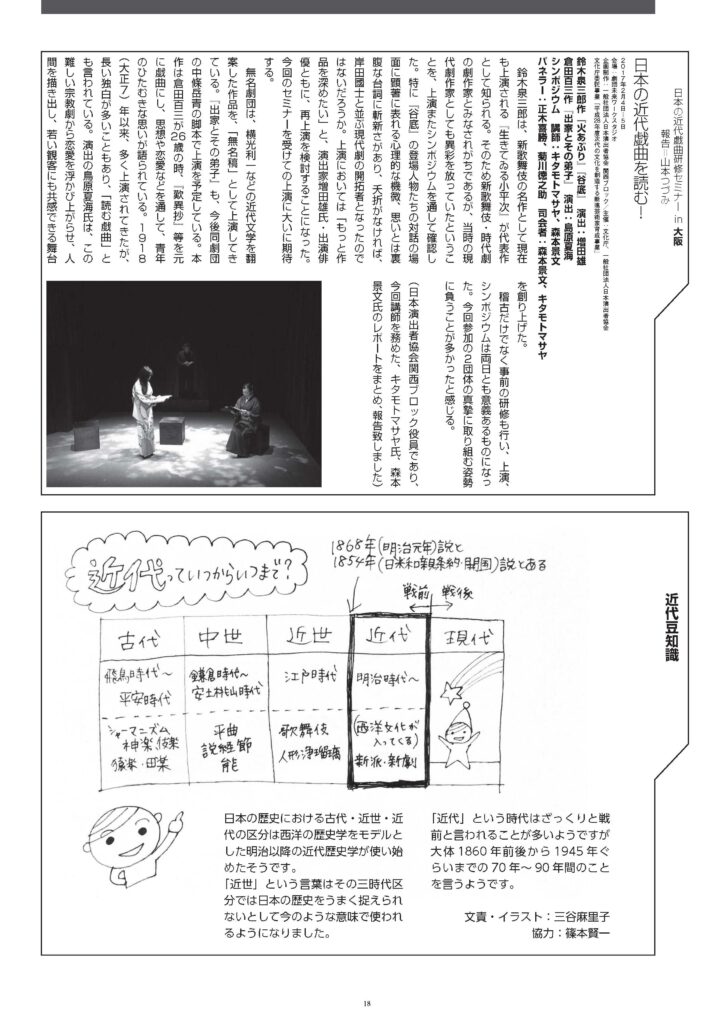 日本の近代戯曲研修セミナー in 大阪
日本の近代戯曲を読む！
報告＝山本つづみ
2017年2月4日–5日
会場：劇団未来ワークスタジオ
企画制作：一般社団法人日本演出者協会 関西ブロック／主催：文化庁、一般社団法人日本演出者協会
文化庁委託事業「平成28年度次代の文化を創造する新進芸術家育成事業」
鈴木泉三郎作『火あぶり』『谷底』 演出：増田雄
倉田百三作『出家とその弟子』 演出：島原夏海
シンポジウム 講師：キタモトマサヤ、森本景文
パネラー：正木喜勝、菊川徳之助 司会者：森本景文、キタモトマサヤ
鈴木泉三郎は、新歌舞伎の名作として現在
も上演される『生きてゐる小平次』が代表作
として知られる。そのため新歌舞伎・時代劇
の劇作家とみなされがちであるが、当時の現
代劇作家としても異彩を放っていたというこ
とを、上演またシンポジウムを通して確認し
た。特に『谷底』の登場人物たちの対話の場
面に顕著に表れる心理的な機微、思いとは裏
腹な台詞に斬新さがあり、夭折がなければ、
岸田國士と並ぶ現代劇の開拓者となったので
はないだろうか。上演においては「もっと作
品を深めたい」と、演出家増田雄氏・出演俳
優ともに、再上演を検討することになった。
今回のセミナーを受けての上演に大いに期待
する。
無名劇団は、横光利一などの近代文学を翻
案した作品を、「無名稿」として上演してき
ている。『出家とその弟子』も、今後同劇団
の中條岳青の脚本で上演を予定している。本
作は倉田百三が26歳の時、『歎異抄』等を元
に戯曲にし、思想や恋愛などを通して、青年
のひたむきな思いが語られている。1918
（大正7）年以来、多く上演されてきたが、
長い独白が多いこともあり、「読む戯曲」と
も言われている。演出の島原夏海氏は、この
難しい宗教劇から恋愛を浮かび上がらせ、人
間を描き出し、若い観客にも共感できる舞台
を創り上げた。
稽古だけでなく事前の研修も行い、上演、
シンポジウムは両日とも意義あるものになっ
た。今回参加の2団体の真摯に取り組む姿勢
に負うことが多かったと感じる。
（日本演出者協会関西ブロック役員であり、
今回講師を務めた、キタモトマサヤ氏、森本
景文氏のレポートをまとめ、報告致しました）
近代豆知識
近代っていつからいつまで？
1868年(明治元年)説と
1854年(日米和親条約・開国)説とある
戦前 戦後
古代 中世 近世 近代 現代
飛鳥時代〜
平安時代
鎌倉時代〜
安土桃山時代
江戸時代
明治時代〜
シャーマニズム
神楽、伎楽
猿楽・田楽
平曲
説経節
能
歌舞伎
人形浄瑠璃
(西洋文化が
入ってくる)
新派・新劇
日本の歴史における古代・近世・近
代の区分は西洋の歴史学をモデルと
した明治以降の近代歴史学が使い始
めたそうです。
「近世」という言葉はその三時代区
分では日本の歴史をうまく捉えられ
ないとして今のような意味で使われ
るようになりました。
「近代」という時代はざっくりと戦
前と言われることが多いようですが
大体1860年前後から1945年ぐ
らいまでの70年〜90年間のこと
を言うようです。
文責・イラスト：三谷麻里子
協力：篠本賢一
18